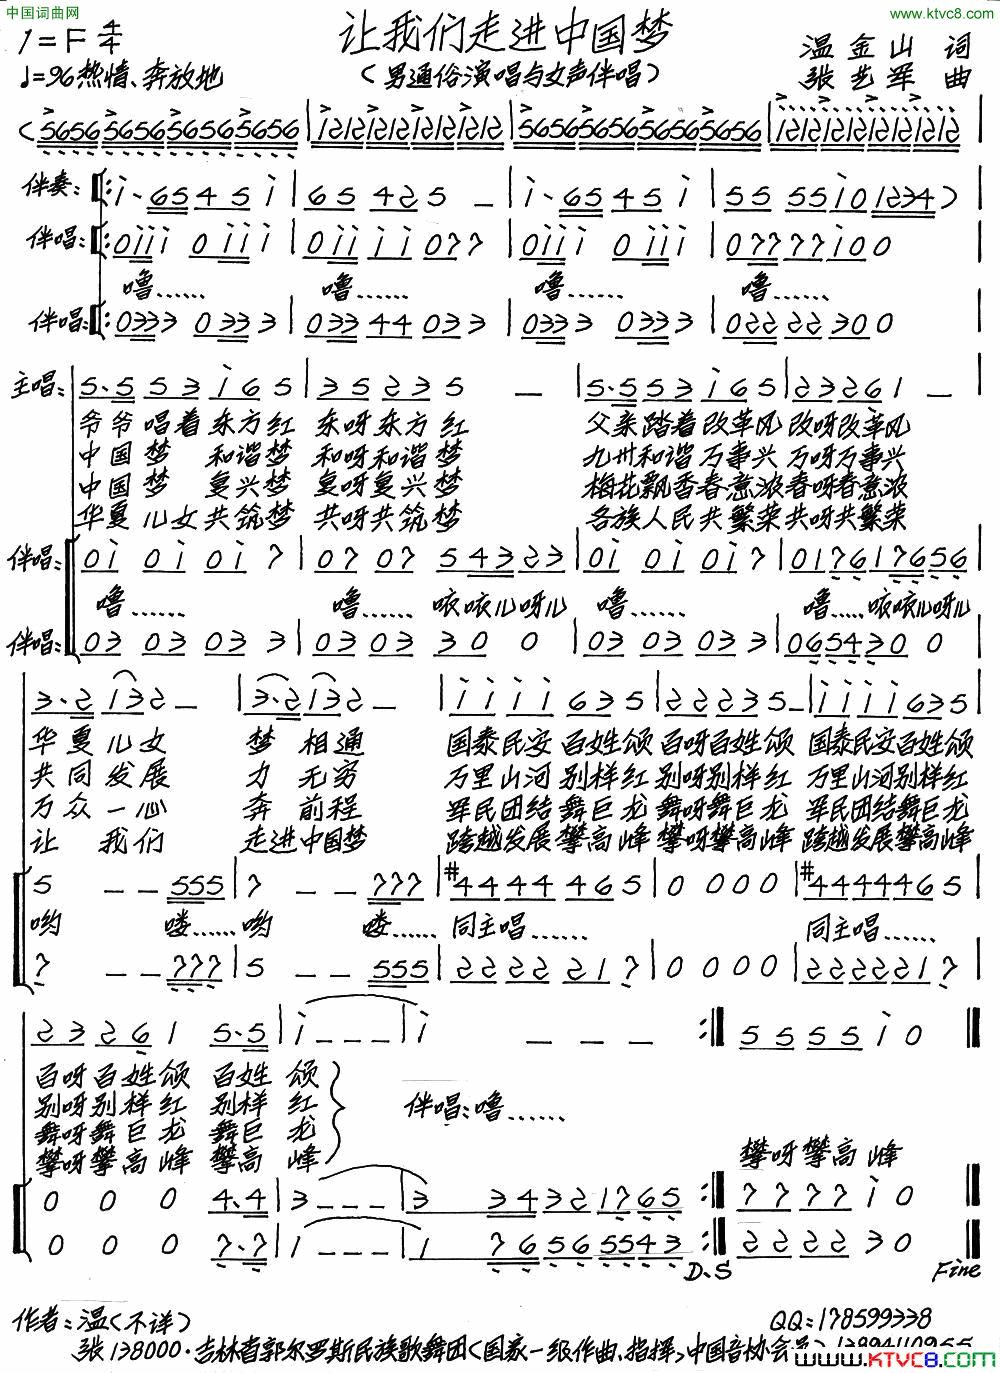 中国词曲网
www.ktvc8.com
让我们走进中国梦
1=F 4/4
♩=96 热情、奔放地
(男通俗演唱与女声伴唱)
温金山 词
张艺军 曲
(5656 5656 5656 5656 | 1212 1212 1212 1212 | 5656 5656 5656 5656 | 1212 1212 1212 1212 |
伴奏: i·65 45 i | 65 425 — | i·65 45 i | 55 55 i0 1234) |
伴唱: 0iii 0iii | 0iii ii 077 | 0iii 0iii | 0777 7i 00
噜…… 噜…… 噜…… 噜……
伴唱: 0333 0333 | 0333 44 033 | 0333 0333 | 0222 2 300
主唱: 5·5 53 i65 | 35 235 — | 5·5 53 i65 | 23 261 —
爷爷唱着东方红 东呀东方红 父亲踏着改革风 改呀改革风
中国梦 和谐梦 和呀和谐梦 九州和谐万事兴 万呀万事兴
中国梦 复兴梦 复呀复兴梦 梅花飘香春意浓 春呀春意浓
华夏儿女共筑梦 共呀共筑梦 各族人民共繁荣 共呀共繁荣
伴唱: 0i 0i 0i 7 | 07 07 54323 | 0i 0i 0i 7 | 0176 17656
噜…… 噜…… 咴咴儿呀儿 噜…… 噜…… 咴咴儿呀儿
伴唱: 03 03 03 3 | 03 03 30 0 | 03 03 03 3 | 065430 0
3·2 132 — | 3·2 132 — | iiii 635 | 2222 35 — | iiii 635
华夏儿女 梦相通 国泰民安百姓颂 百呀百姓颂 国泰民安百姓颂
共同发展 力无穷 万里山河别样红 别呀别样红 万里山河别样红
万众一心 奔前程 军民团结舞巨龙 舞呀舞巨龙 军民团结舞巨龙
让我们 走进中国梦 跨越发展攀高峰 攀呀攀高峰 跨越发展攀高峰
5 — — 555 | 7 — — 777 | #4444 465 | 0 0 0 0 | #4444 465
哟 喽…… 哟 喽…… 同主唱…… 同主唱……
7 — — 777 | 5 — — 555 | 2222 217 | 0 0 0 0 | 2222 217
23 261 5·5 | i — — — | i — — — :‖ 5555 i0 ‖
百呀百姓颂 百姓颂
别呀别样红 别样红
舞呀舞巨龙 舞巨龙
攀呀攀高峰 攀高峰
伴唱:噜……
攀呀攀高峰
0 0 0 4·4 | 3 — — — | 3 34321765 :‖ 7777 i0 ‖
0 0 0 7·7 | 1 — — — | 1 76565543 :‖ 2222 30 ‖
D.S
Fine
作者:温(不详)
QQ:178599338
张138000·吉林省郭尔罗斯民族歌舞团(国家一级作曲、指挥、中国音协会员)
www.KTVC8.com